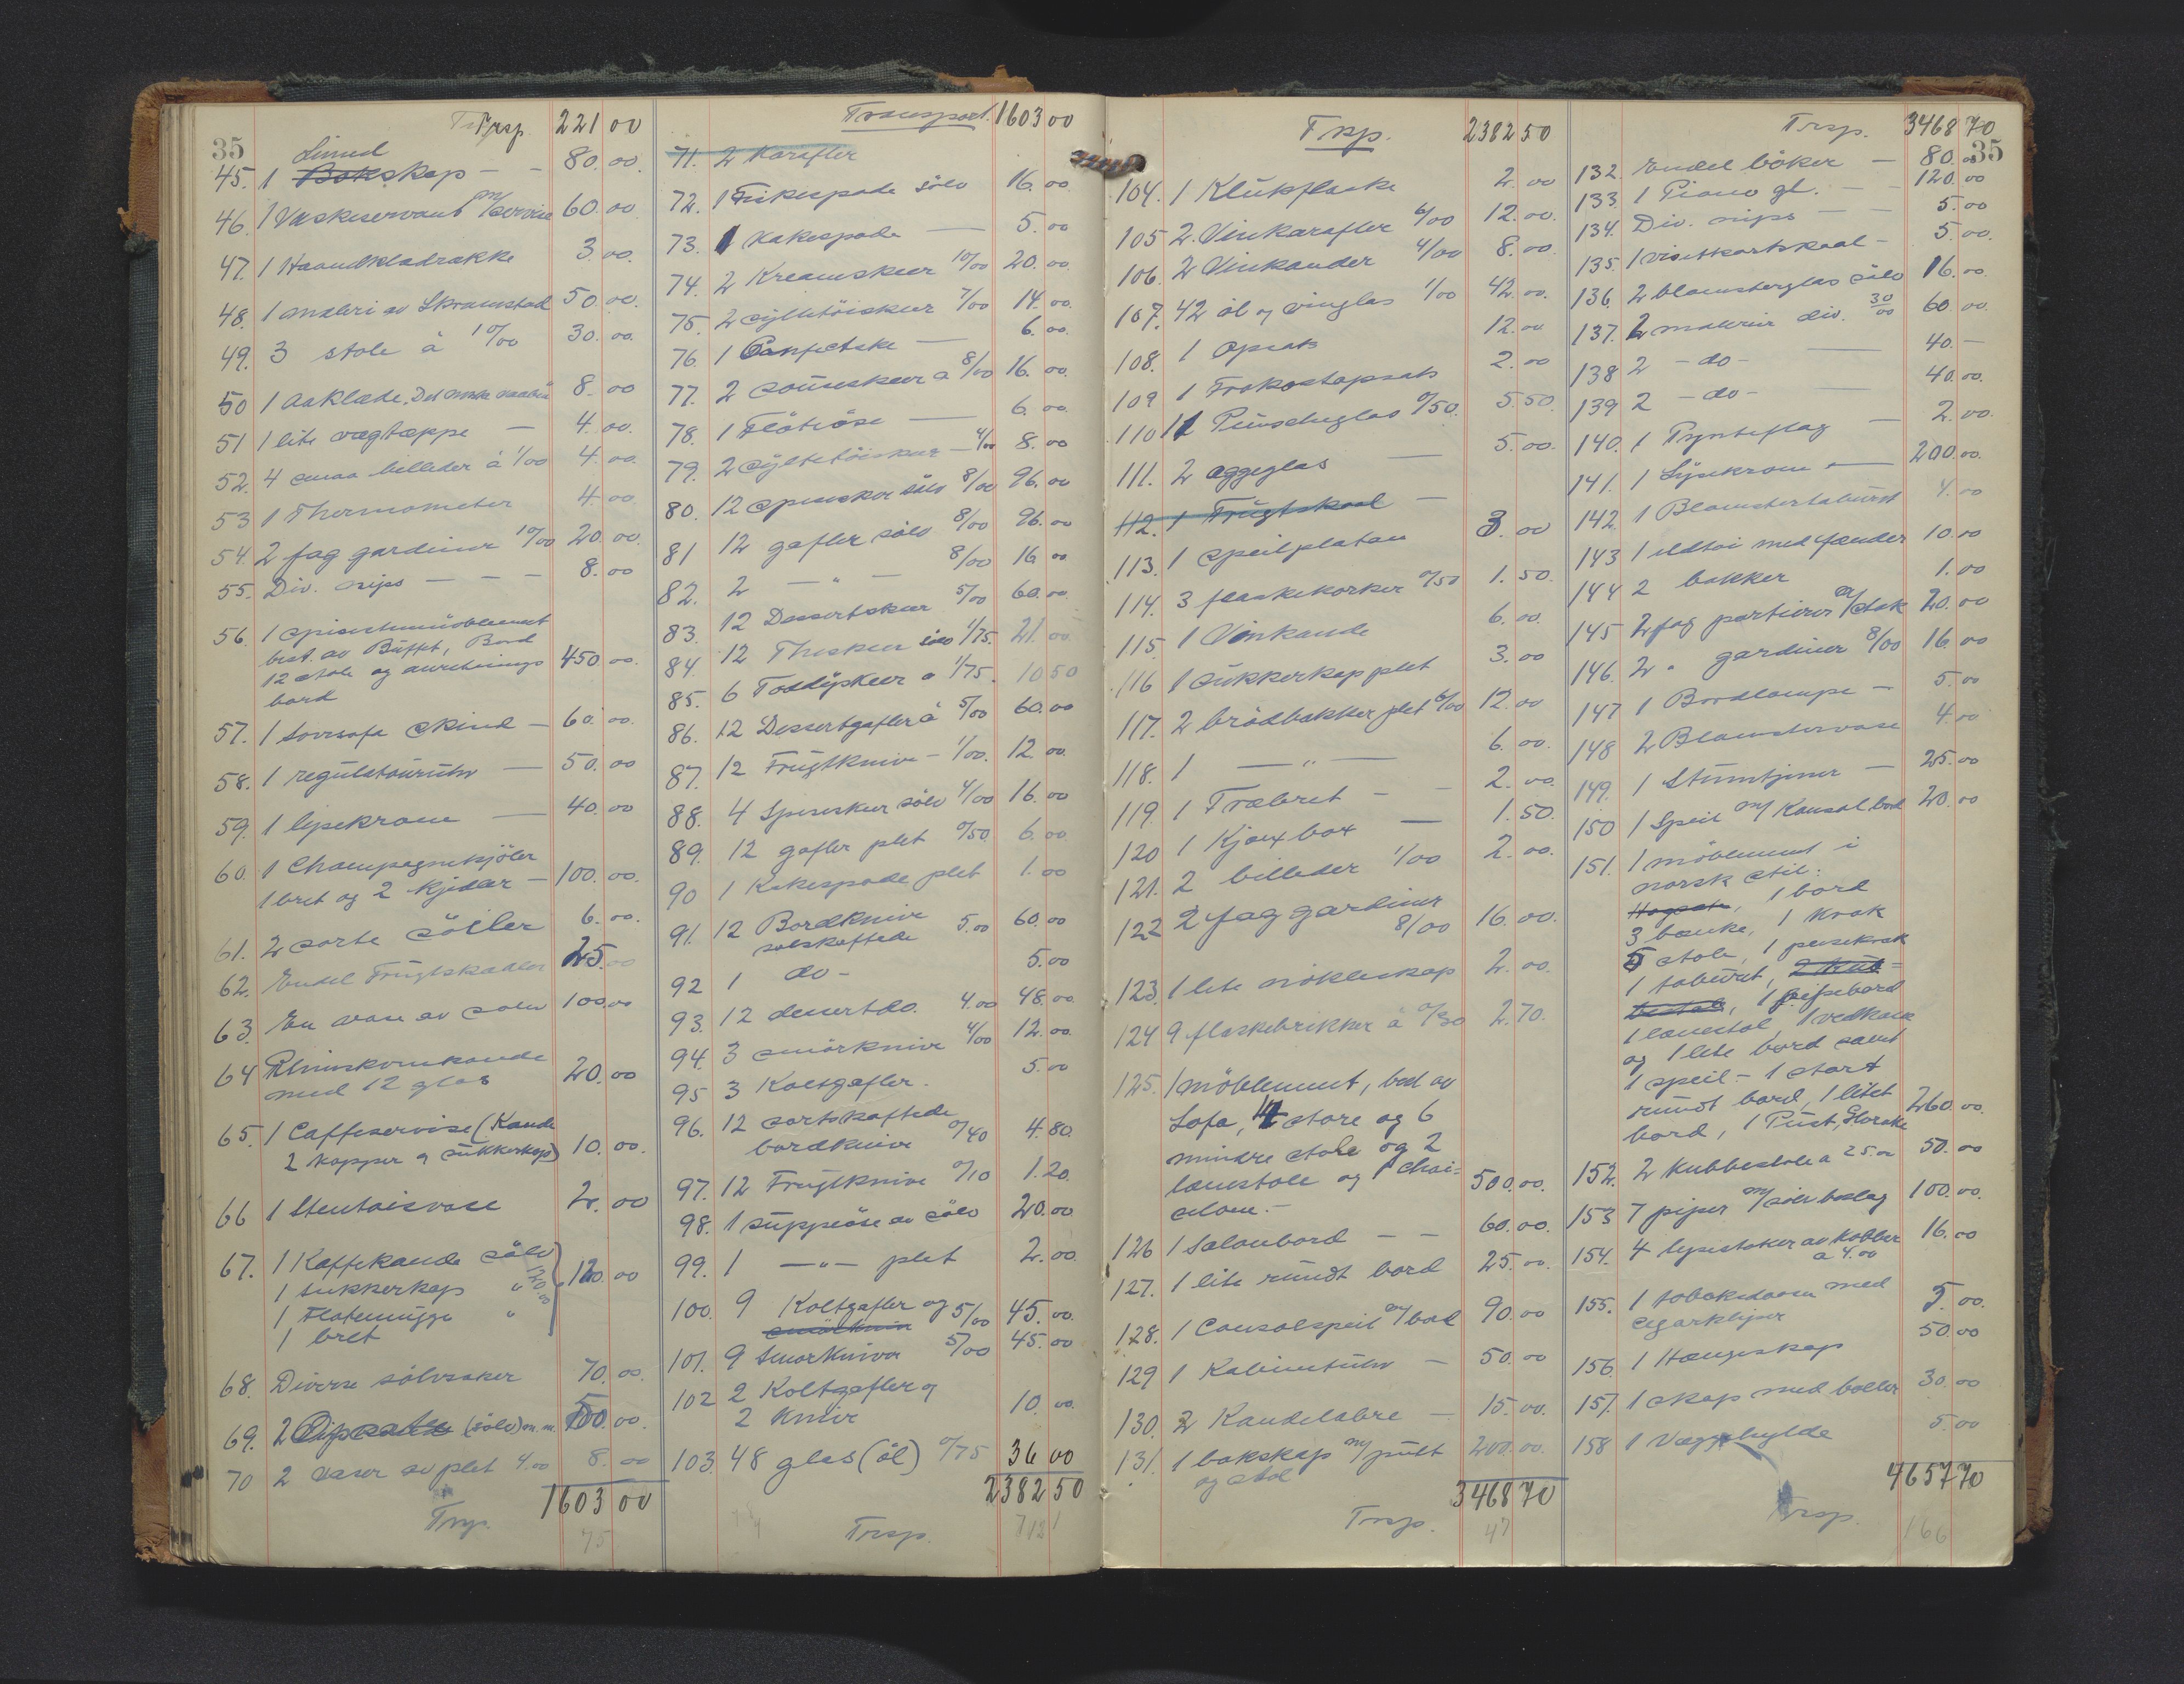 35
Trsp. 221 00
45. 1 Linned Bokskap - - 80. 00.
46. 1 Vaskeservant m/servise 60. 00.
47. 1 Haandklædrække 3. 00.
48. 1 maleri av Skramstad 50. 00.
49. 3 stole à 10/00 30. 00.
50 1 aaklæde. 8. 00
51 1 lite vægteppe - 4. 00.
52. 4 smaa billeder à 1/00 4. 00.
53 1 Thermometer 4. 00
54. 2 fag gardiner 10/00 20. 00.
55. Div. nips - - - 8. 00
56. 1 spisestuemöblement
best. av Büffet, Bord
12 stole og anretnings 450 00.
bord
57. 1 Sovesofa skind - 60. 00.
58. 1 regülatorühr - 50. 00
59. 1 lysekrone - 40. 00
60. 1 Champagnekjöler
1 bret og 2 kjeder - 100. 00.
61. 2 sorte söiler 6. 00.
62. Endel Frügtskaaler 25. 00
63. En vase av sölv 100. 00
64 Rhinskvinkande
med 12 glas 20. 00
65. 1 Caffeservise (Kande
2 kopper og sükkerkop) 10. 00.
66 1 Stentöisvase 2. 00
67. 1 Kaffekande sölv
1 sukkerkop " 120. 00
1 Flötemügge "
1 bret
120.00
68. Diverse sölvsaker 70. 00.
69. 2 Opsatse (sölv) m.m. 500. 00.
70 2 vaser av plet 4.00 8. 00
1603 00
Trsp.
75
Transport. 1603 00
71. 2 Karafler
72. 1 Fiskespade sölv 16. 00.
73. 1 Kakespade - 5. 00
74. 2 Kremskeer 10/00 20. 00.
75. 2 syltetöiskeer 7/00 14. 00.
76. 1 Confektske - 6. 00.
77. 2 Souseskeer a 8/00 16. 00.
78. 1 Flötöse - 6. 00.
79. 2 syltetöiskeer - 4/00 8. 00
80. 12 spiseskeer sölv 8/00 96. 00
81 12 gafler sölv 8/00 96. 00
82. 2 - " - 8/00 16 00
83. 12 Dessertskeer 5/00 60. 00.
84. 12 Theskeer sölv 1/75. 21. 00.
85. 6 Toddyskeer a 1/75. 10 50
86. 12 Dessertgafler à 5/00 60. 00
87. 12 Frügtknive - 1/00. 12. 00.
88. 4 Spiseskeer sölv 4/00 16. 00
89. 12 gafler plet 0/50. 6. 00.
90 1 Kakespade plet 1. 00
91. 12 Bordknive
sölskaftede 5.00 60. 00
92 1 do - 5. 00
93. 12 dessert do. 4.00 48. 00
94. 3 smörknive 4/00 12. 00.
95 3 Koltgafler. 5. 00
96. 12 sortskaftede
bordknive 0/40 4. 80.
97. 12 Frügtknive 0/10 1. 20.
98. 1 süppeöse av sölv 20. 00
99. 1 - " - plet 2. 00.
100. 9 Koltgafler og 5/00 45. 00.
smörkniv
101. 9 Smörkniver 5/00 45. 00
102 2 Koltgafler og
2 knive 10. 00.
103. 48 glas (öl) 0/75 36 00
2382 50
Trsp.
Trsp. 2382 50
104. 1 Klükflaske 2. 00
105 2. Vinkarafler 6/00 12. 00.
106. 2 Vinkander 4/00 8. 00.
107. 42 öl og vinglas 1/00 42. 00.
108. 1 Opsats 12. 00
109 1 Frokostopsats 2. 00
110 11 Pünschglas 0/50. 5. 50.
111. 2 æggeglas - 5. 00.
112. 1 Frügtskaal -
113. 1 speilplatau 3. 00
114. 3 flaskekorker 0/50 1. 50.
115. 1 Vinkande 6. 00.
116 1 sükkerkop plet 3. 00
117. 2 brödbakker plet 6/00 12. 00
118. 1 - " - 6. 00.
119. 1 Træbret - - 2. 00.
120 1 Kjæxbox - 1. 50.
121. 2 billeder 1/00 2. 00.
122 2 fag gardiner
8/00 16. 00.
123. 1 lite nökleskap 2. 00.
124 9 flaskebrikker à 0/30 2. 70.
125. 1 möblement, best av
Sofa, 4 store og 6
mindre stole og 2
lænestole og 1 chai-
selone.- 500. 00.
126 1 Salonbord - - 60. 00.
127. 1 literündt bord 25. 00.
128. 1 Consolspeil m/bord 90. 00
129 1 Kabinetsühr - 50. 00
130. 2 Kandelabre - 15. 00.
131. 1 bokskap m/pült 200. 00.
og stol
3468 70
Trsp.
47
35
Trsp. 3468 70
132. Endel böker - 80. 00
133. 1 Piano gl. - - 120. 00
134. Div. nips - - 5. 00
135. 1 visitkortskaal - 5. 00.
136 2 blomsterglas sölv 16. 00.
137. 2 malerier div. 30/00 60. 00.
138 2 - do - - 40. -
139 2 - do - - 40. 00.
140. 1 Pynteflag - 2. 00.
141. 1 Lysekrone - 200. 00.
142. 1 Blomstertaburet 4. 00
143 1 ildtöi med fender 10. 00
144 2 bakker 1. 00
145 2 fag portierer m/stak 20. 00
146. 2 " gardiner 8/00 16. 00
147 1 Bordlampe - 5. 00
148 2 Blomstervase 4. 00
149. 1 Stumtjener - 25. 00
150 1 Speil m/ Konsolbord 20. 00
151. 1 möblement i
norsk stil.
1 bord
3 bænke, 1 krak
5 stole, 1 peisekrak
1 taburet,
1 peisebord
1 lænestol, 1 vedkasse
og 1 lite bord samt
1 speil - 1 stort
ründt bord, 1 litet
bord, 1 Püst, 260. 00.
152. 2 Kubbestole a 25.00 50. 00
153 7 piper m/sölvbeslag 100. 00.
154. 4 lysestaker av kobber 16. 00
a 4.00
155. 1 tobaksdaase med
cigarklipper 5. 00.
156. 1 Hængeskap 50. 00
157. 1 skap med boller 30. 00
158 1 Væghylde 5. 00
4657 70
Trsp.
166